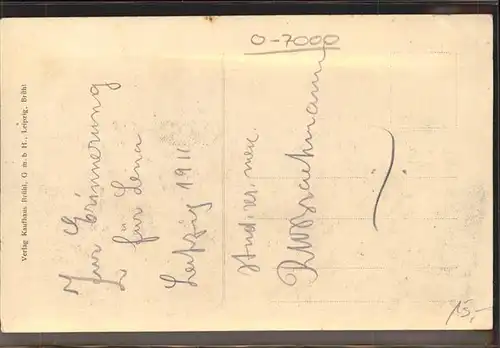 O-7000
Zur Erinnerung
für Lena
Leipzig 1911
stud. rer. merc.
Verlag Kaufhaus Brühl, G. m. b. H., Leipzig, Brühl
15,-